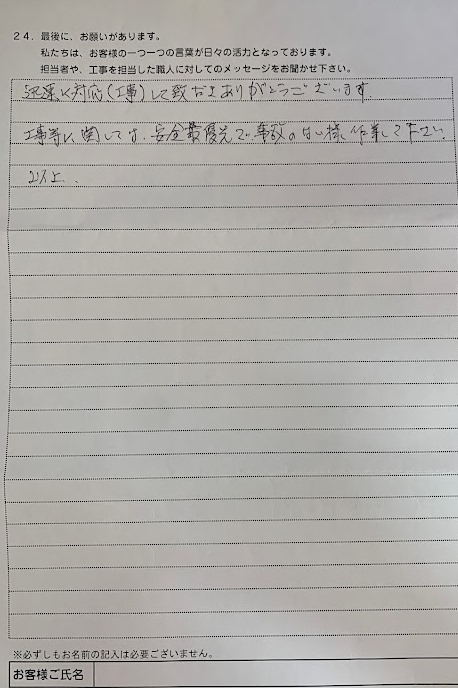 24. 最後に、お願いがあります。
私たちは、お客様の一つ一つの言葉が日々の活力となっております。
担当者や、工事を担当した職人に対してのメッセージをお聞かせ下さい。
迅速に対応(工事)して致だきありがとうございます。
工事等に関しては、安全最優先で、事故のない様、作業して下さい。
以上、
※必ずしもお名前の記入は必要ございません。
お客様ご氏名